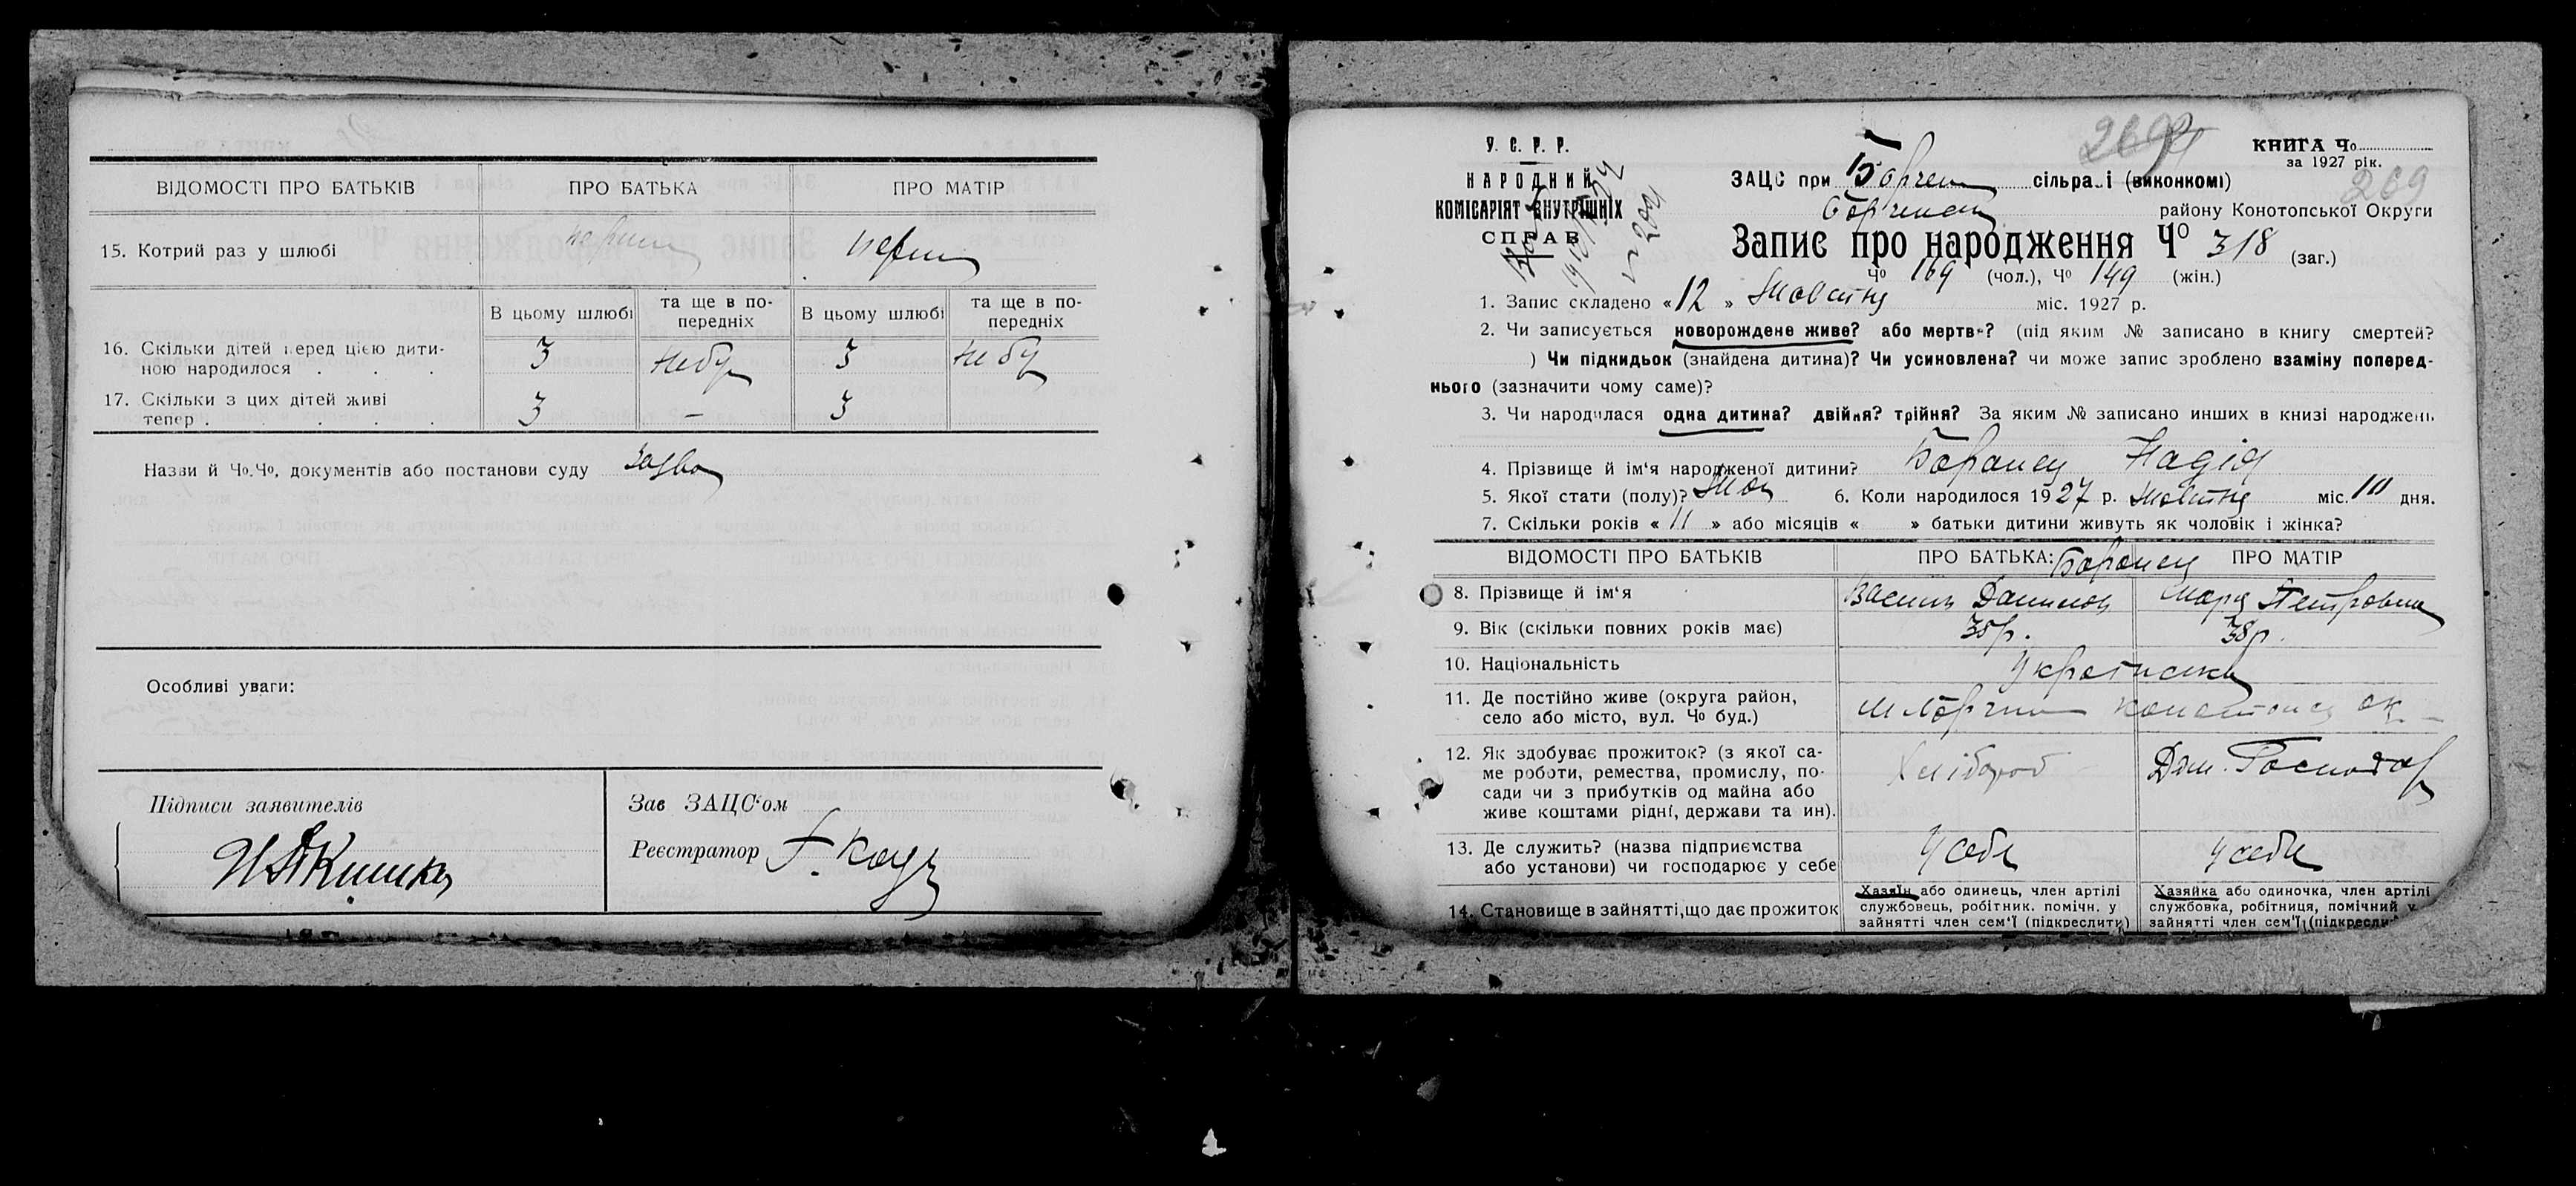 ВІДОМОСТІ ПРО БАТЬКІВ ПРО БАТЬКА ПРО МАТІР
15. Котрий раз у шлюбі перши перши
В цьому шлюбі та ще в по-передніх В цьому шлюбі та ще в по-передніх
16. Скільки дітей перед цією дити-
ною народилося . . . 3 небу 3 небу
17. Скільки з цих дітей живі
тепер . . . . . 3 — 3
Назви й Чо.Чо, документів або постанови суду
Особливі уваги:
Підписи заявителів
Зав ЗАЦС'ом
Реєстратор Г. Коуз
У. С. Р. Р.
НАРОДНИЙ
КОМІСАРІЯТ ВНУТРІШНІХ
СПРАВ
269
КНИГА Чо
за 1927 рік.
269
ЗАЦС при Борзен сільраді (виконкомі)
Борзенск району Конотопської Округи
Запис про народження Чо 318 (заг.)
Чо 169 (чол.), Чо 149 (жін.)
1. Запис складено «12» Жовтня міс. 1927 р.
2. Чи записується новорождене живе? або мертве? (під яким № записано в книгу смертей?
) Чи підкидьок (знайдена дитина)? Чи усиновлена? чи може запис зроблено взаміну поперед-
нього (зазначити чому саме)?
3. Чи народилася одна дитина? двійня? трійня? За яким № записано инших в книзі народжень
4. Прізвище й ім'я народженої дитини? Боронец Надія
5. Якої стати (полу)? Жон 6. Коли народилося 1927 р. Жовтня міс. 10 дня.
7. Скільки років «11» або місяців « » батьки дитини живуть як чоловік і жінка?
ВІДОМОСТІ ПРО БАТЬКІВ ПРО БАТЬКА: ПРО МАТІР
Боронец
8. Прізвище й ім'я Василь Данилов Марія Петровна
9. Вік (скільки повних років має) 38р. 38р.
10. Національність Українська
11. Де постійно живе (округа район,
село або місто, вул. Чо буд.) м Борзна Конотопск ок.
12. Як здобуває прожиток? (з якої са-
ме роботи, ремества, промислу, по-
сади чи з прибутків од майна або
живе коштами рідні, держави та ин). Хлібороб Дом. Господар
13. Де служить? (назва підприємства
або установи) чи господарює у себе У себе У себе
14. Становище в зайнятті, що дає прожиток
Хазяїн або одинець, член артілі
службовець, робітник. помічн. у
зайнятті член сем'ї (підкреслити)
Хазяйка або одиночка, член артілі
службовка, робітниця, помічний у
зайнятті член сем'ї (підкресли